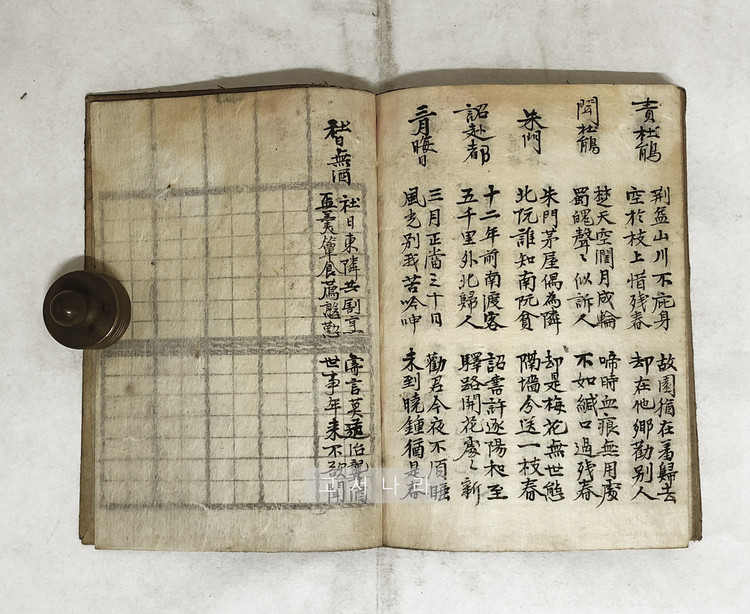 責杜鵑
荆益山川不庇身
空於枝上惜残春
故園猶在盍歸去
却在他鄉勸别人
聞杜鵑
楚天空闊月成輪
蜀魄聲〻似訴人
啼時血痕無用處
不如緘口過残春
朱門
朱門茅屋偶為隣
北阮誰知南阮貧
却是梅花無世態
隔墻分送一枝春
詔赴都
十二年前南渡客
五千里外北歸人
詔書許逐陽和至
驛路開花處〻新
三月晦日
三月正當三十日
風光别我苦吟呻
勸君今夜不須睡
未到曉鍾猶是春
社日無酒
社日東隣共割烹
盃羹簞食薦盤
寄言莫遣治聾酒
世事年来不欲聞
고서나라